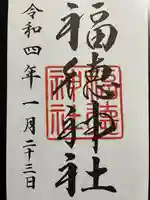 福徳神社
令和四年一月二十三日
福徳
神社